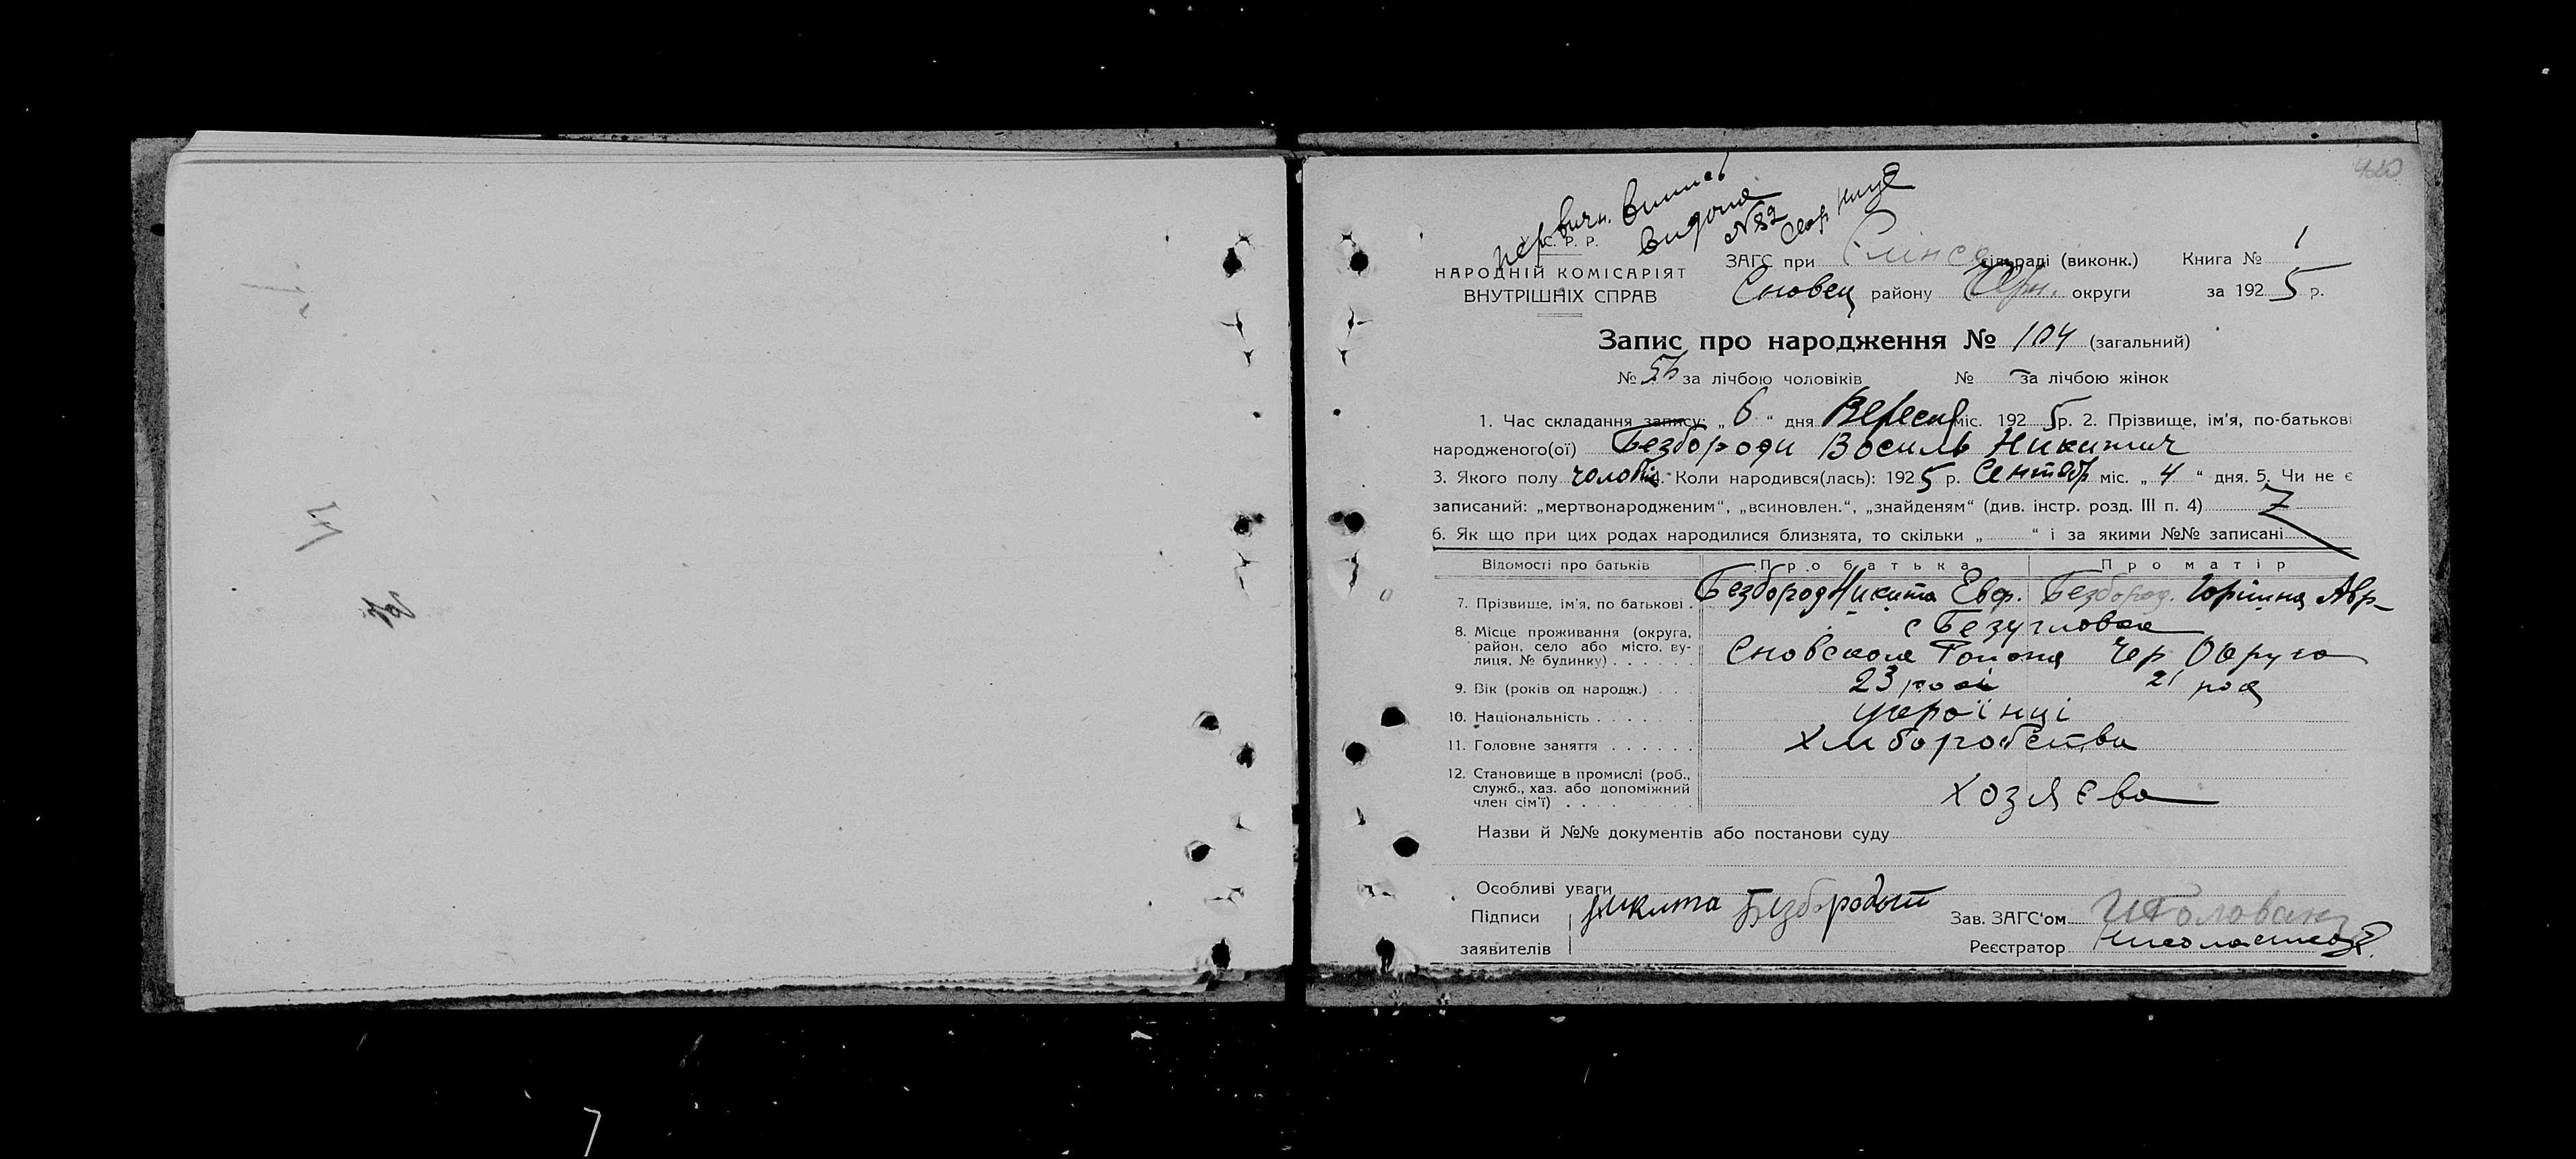 420
первичн. випись
видана
№ 32
С. Р. Р.
НАРОДНІЙ КОМІСАРІЯТ
ВНУТРІШНІХ СПРАВ
ЗАГС при сільраді (виконк.) Книга № 1
Сновськ району Черн. округи за 1925 р.
Запис про народження № 104 (загальний)
№ 56 за лічбою чоловіків № — за лічбою жінок
1. Час складання запису: „ 6 “ дня Вересня міс. 1925 р. 2. Прізвище, ім'я, по-батькові
народженого(ої) Безбороди Василь Никитич
3. Якого полу чоловіч. 4. Коли народився(лась): 1925 р. Сентябр міс. „ 4 “ дня. 5. Чи не є
записаний: „мертвонародженим“, „всиновлен.“, „знайденям“ (див. інстр. розд. III п. 4)
6. Як що при цих родах народилися близнята, то скільки „ “ і за якими №№ записані
Відомості про батьків Про батька Про матір
7. Прізвище, ім'я, по батькові . Безбород Никита Евф. Безбород. Горпина Авр.
8. Місце проживання (округа, район, село або місто, вулиця, № будинку) . . . . . .
с Безугловка
Сновского Района Чер Округа
9. Вік (років од народж.) . . . 23 років 21 рок
10. Національність . . . . . . українці
11. Головне заняття . . . . . . хліборобства
12. Становище в промислі (роб., служб., хаз. або допоміжний член сім'ї) . . . .
хозяєва
Назви й №№ документів або постанови суду
Особливі уваги
Підписи заявителів
Никита Безбородый
Зав. ЗАГС'ом
Реєстратор